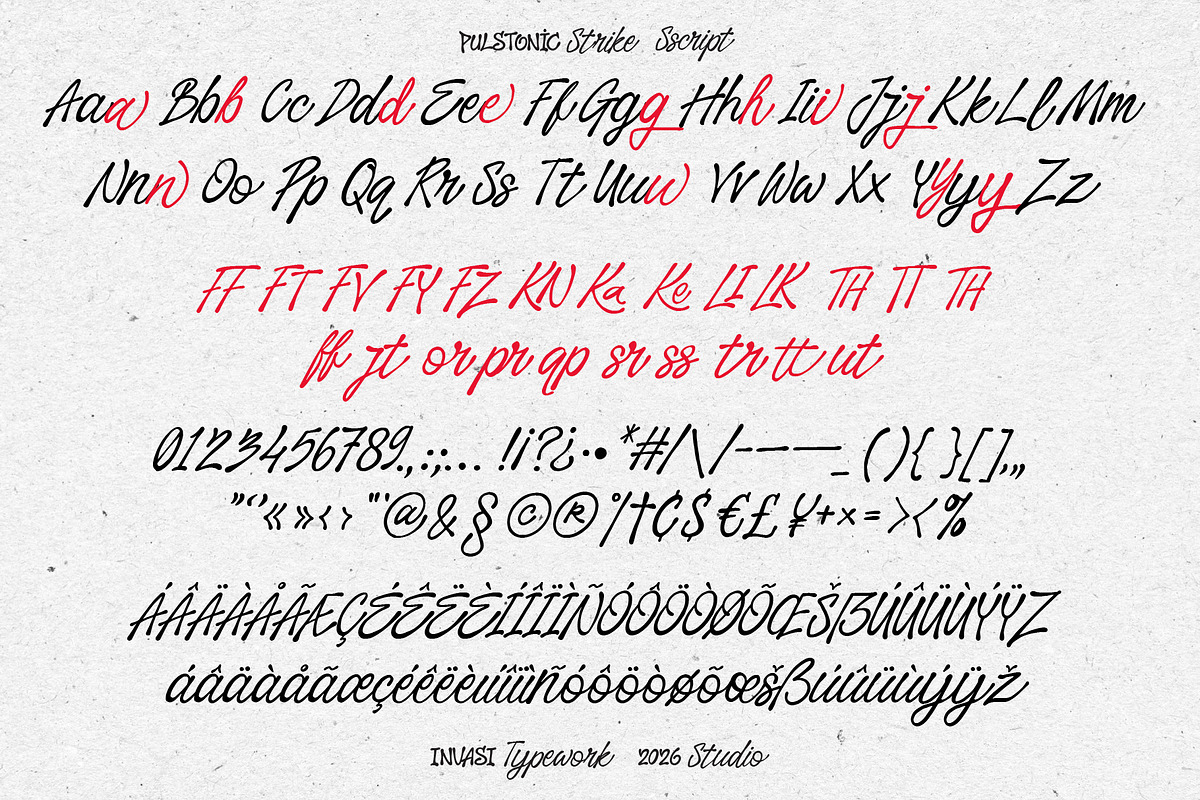 PULSTONIC Strike Sscript
Aaa Bbb Cc Ddd Eee Ff Ggg Hhh Iii Jjj Kk Ll Mm
Nnn Oo Pp Qq Rr Ss Tt Uuu Vv Ww Xx YYyy Zz
FF FT FV FY FZ KN Ka Ke LI LK TH TT TH
ff jt or pr qp sr ss tr tt ut
0123456789.,:;... !¡?¿·•*#/\/-–—_(){}[]‚„
”‘’«»‹›"'@&§©®°|†¢$€£¥+×=><%
ÁÂÄÀÅÃÆÇÉÊËÈÍÎÏÌÑÓÔÖÒØÕŒŠẞÚÛÜÙÝŸŽ
áâäàåãæçéêëèıíîïìñóôöòøõœšßúûüùýÿž
INVASI Typework 2026 Studio